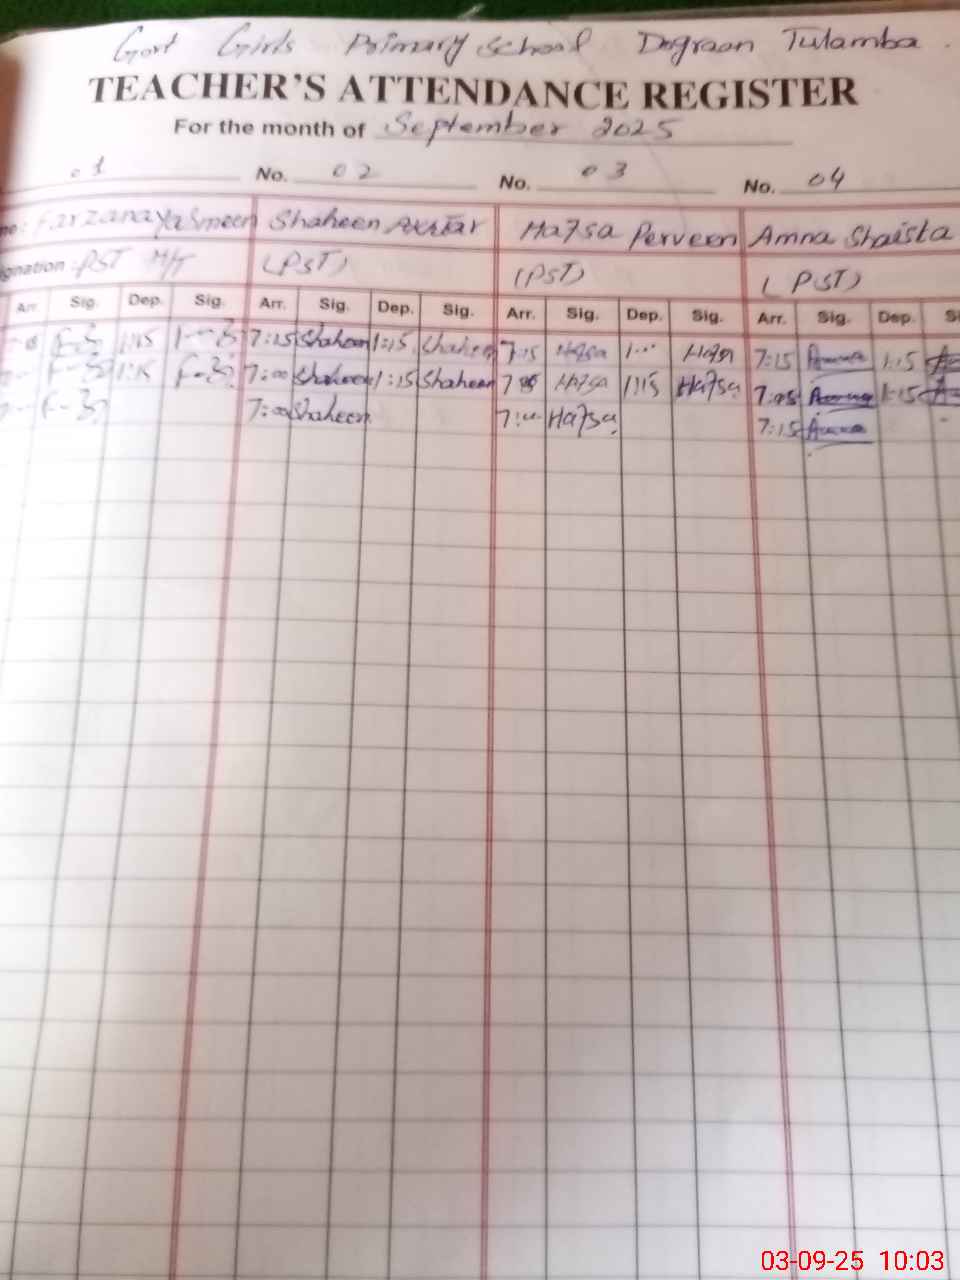 Govt Girls Primary School Dograan Tulamba.
TEACHER'S ATTENDANCE REGISTER
For the month of September 2025
01 No. 02 No. 03 No. 04
me: Farzana Yasmeen Shaheen Akhtar Hafsa Perveen Amna Shaista
ignation: PST H/T (PST) (PST) (PST)
Arr. Sig. Dep. Sig. Arr. Sig. Dep. Sig. Arr. Sig. Dep. Sig. Arr. Sig. Dep. Si
1:15 7:15 Shaheen 1:15 Shaheen 7:15 Hafsa Hafsa 7:15 Amna 1:15
1:15 7:00 Shaheen 1:15 Shaheen Hafsa 1:15 Hafsa Amna 1:15
7:00 Shaheen Hafsa 7:15 Amna
03-09-25 10:03